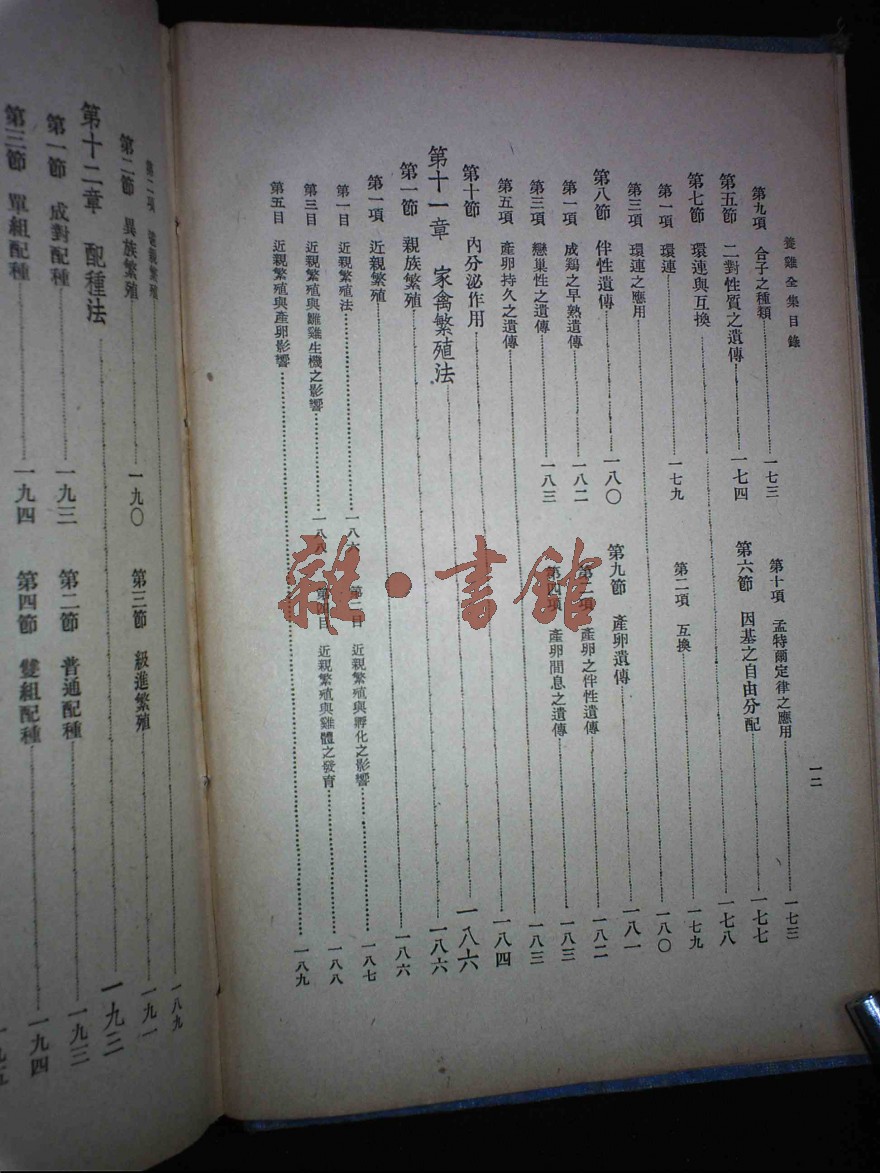 養雞全集目錄
一二
第九項 合子之種類 一七三 第十項 孟特爾定律之應用 一七三
第五節 二對性質之遺傳 一七四 第六節 因基之自由分配 一七七
第七節 環連與互換 一七八
第一項 環連 一七九 第二項 互換 一七九
第三項 環連之應用 一八〇
第八節 伴性遺傳 一八〇 第九節 產卵遺傳 一八一
第一項 成鷄之早熟遺傳 一八二 第二項 產卵之伴性遺傳 一八二
第三項 戀巢性之遺傳 一八三 第四項 產卵間息之遺傳 一八三
第五項 產卵持久之遺傳 一八三
第十節 內分泌作用 一八四
第十一章 家禽繁殖法 一八六
第一節 親族繁殖 一八六
第一項 近親繁殖 一八六
第一目 近親繁殖法 一八六 第二目 近親繁殖與孵化之影響 一八七
第三目 近親繁殖與雛雞生機之影響 一八八 第四目 近親繁殖與雞體之發育 一八八
第五目 近親繁殖與產卵影響 一八九
第二項 親繁殖 一八九
第二節 異族繁殖 一九〇 第三節 級進繁殖 一九一
第十二章 配種法 一九三
第一節 成對配種 一九三 第二節 普通配種 一九三
第三節 單組配種 一九四 第四節 雙組配種 一九四
一九五
雜·書館